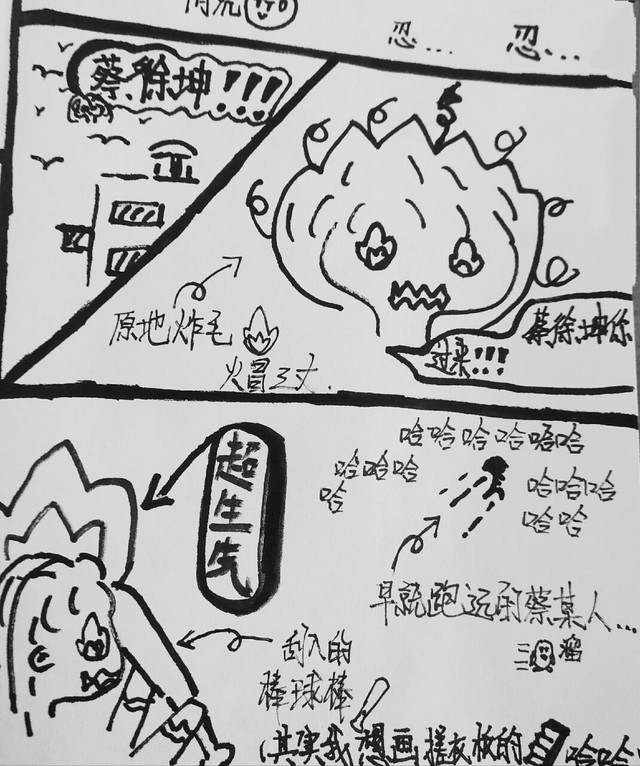 忍...
忍...
蔡徐坤!!!
原地炸毛
火冒三丈.
蔡徐坤你
过来!!!
超生气
哈哈哈哈哈哈
哈哈哈
哈
哈哈哈
哈哈
早就跑远的蔡某人...
溜
刮人的
棒球棒
(其实我想画搓衣板的
哈哈